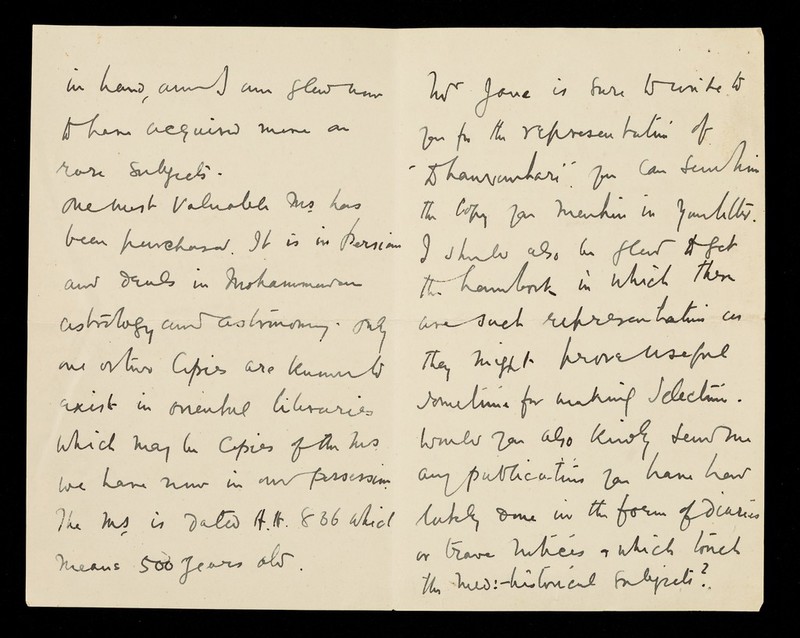 in hand, and I am glad now
to have acquired more on
rare subjects.
One most valuable Ms has
been purchased. It is in Persian
and deals in Mohammedan
astrology and astronomy. only
one or two Copies are known to
exist in oriental libraries
which may be Copies of the Ms.
we have now in our possession
The Ms is dated A.H. 836 which
means 500 years old.
Mr Jane is sure to write to
you for the representation of
"Dhanwantari". you can send him
the Copy you mention in your letter.
I should also be glad to get
the handbook in which there
are such representation as
they might prove useful
sometime for making Selection.
Would you also kindly send me
any publications you have had
lately done in the form of diaries
or trave notices & which touch
the med:-historical subjects?